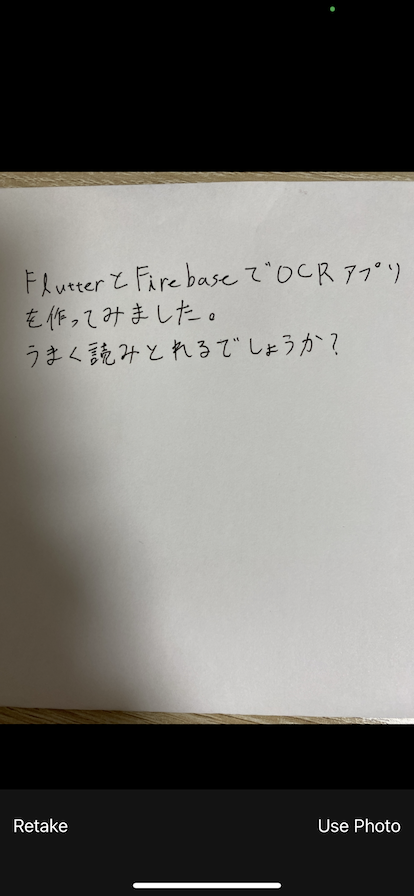 FlutterとFirebaseでOCRアプリ
を作ってみました。
うまく読みとれるでしょうか?
Retake
Use Photo